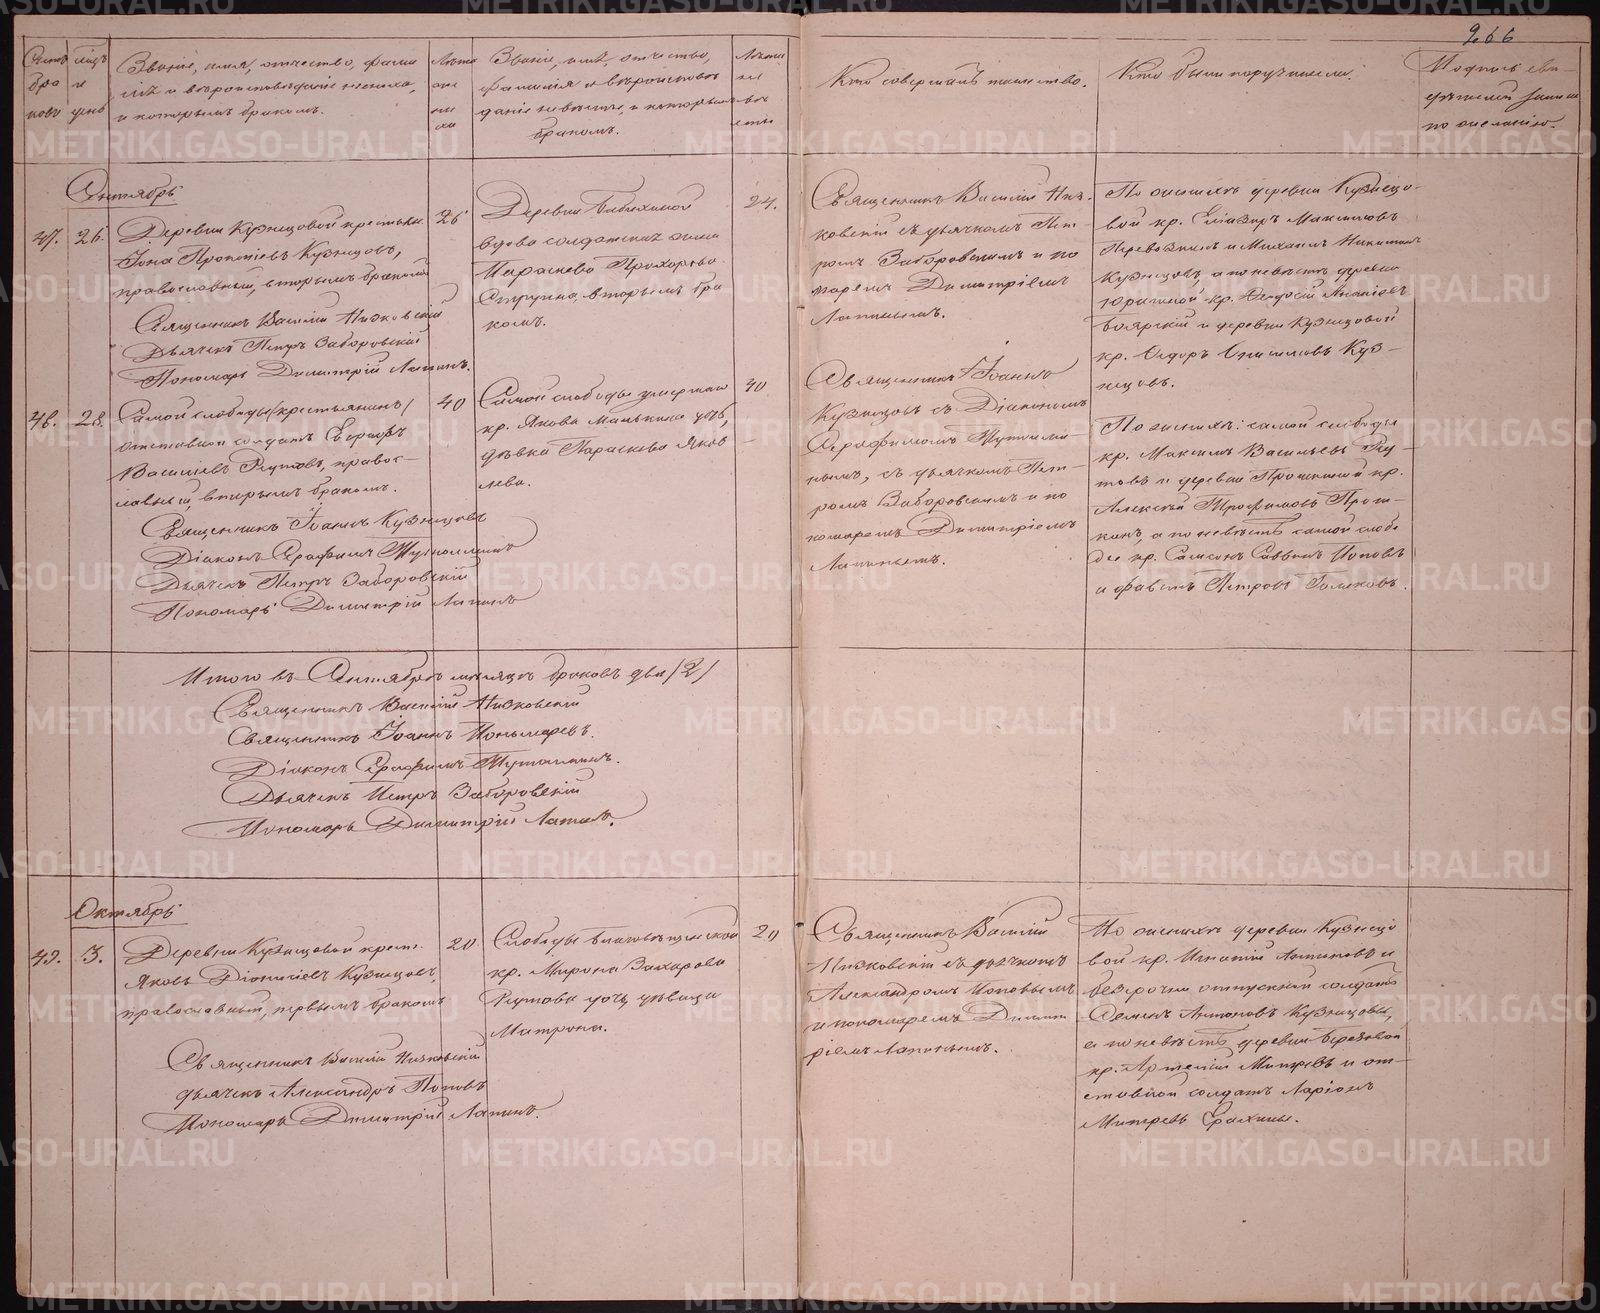 266
Счетъ браковъ
Мѣсяцъ и день
Званіе, имя, отчество, фамилія и вѣроисповѣданіе жениха, и которымъ бракомъ.
Лѣта жениха
Званіе, имя, отчество, фамилія и вѣроисповѣданіе невѣсты, и которымъ бракомъ.
Лѣта невѣсты
Кто совершалъ таинство.
Кто были поручители.
Подпись свидѣтелей записи по желанію.
Сентябрь
47. 26.
Деревни Кузнецовой крестьян.
Іона Прокопіевъ Кузнецовъ,
православный, вторымъ бракомъ
Священникъ Василій Низковскій
Дьячекъ Петръ Заборовскій
Пономарь Димитрій Лапинъ.
26
Деревни Бабихиной
вдова солдатская жена
Параскева Прохорова
вторымъ бра
комъ.
24.
Священникъ Василій Низ-
ковскій съ дьячкомъ Пет-
ромъ Заборовскимъ и по
номаремъ Димитріемъ
Лапинымъ.
По женихѣ деревни Кузнецо-
вой кр. Елиазаръ Максимовъ
Перевозкинъ и Михаилъ Никитинъ
Кузнецовъ, а по невѣстѣ деревни
кр. Ѳедосій Ананіевъ
Боярскій и деревни Кузнецовой
кр. Ѳедоръ Куз-
нецовъ.
48. 28.
Самой слободы /крестьянинъ/
отставной солдатъ Евграфъ
Васильевъ Реутовъ, правос-
лавный, вторымъ бракомъ.
Священникъ Іоаннъ Кузнецовъ
Діаконъ Серафимъ Тутолминъ
Дьячекъ Петръ Заборовскій
Пономарь Димитрій Лапинъ
40
Самой слободы умершаго
кр. Якова Манькина дочь,
дѣвка Параскева Яков
лева.
40
Священникъ Іоаннъ
Кузнецовъ съ Діакономъ
Серафимомъ Тутолми-
нымъ, съ дьячкомъ Пет-
ромъ Заборовскимъ и по
номаремъ Димитріемъ
Лапинымъ.
По женихѣ: самой слободы
кр. Максимъ Васильевъ Реу-
товъ и деревни кр.
Алексѣй Трофимовъ
а по невѣстѣ самой слобо
ды кр. Самсонъ Саввинъ Поповъ
и Фавстъ Петровъ Голиковъ.
Итого въ Сентябрѣ мѣсяцѣ браковъ два /2/
Священникъ Василій Низковскій
Священникъ Іоаннъ Пономаревъ.
Діаконъ Серафимъ Тутолминъ.
Дьячекъ Петръ Заборовскій
Пономарь Димитрій Лапинъ.
Октябрь
49. 3.
Деревни Кузнецовой крест.
Яковъ Діонисіевъ Кузнецовъ,
православный, первымъ бракомъ
Священникъ Василій Низковскій
дьячекъ Александръ Поповъ
Пономарь Димитрій Лапинъ.
20
Слободы Благовѣщенской
кр. Мирона Захарова
Реутова дочь дѣвица
Матрона.
20
Священникъ Василій
Низковскій съ дьячкомъ
Александромъ Поповымъ
и пономаремъ Димит
ріемъ Лапинымъ.
По женихѣ деревни Кузнецо
вой кр. Игнатій Антоновъ и
безсрочно отпускной солдатъ
Семенъ Антоновъ Кузнецовы,
а по невѣстѣ деревни Березовой
кр. Артемій Митревъ и от-
ставной солдатъ Ларіонъ
Митревъ Ерахины.